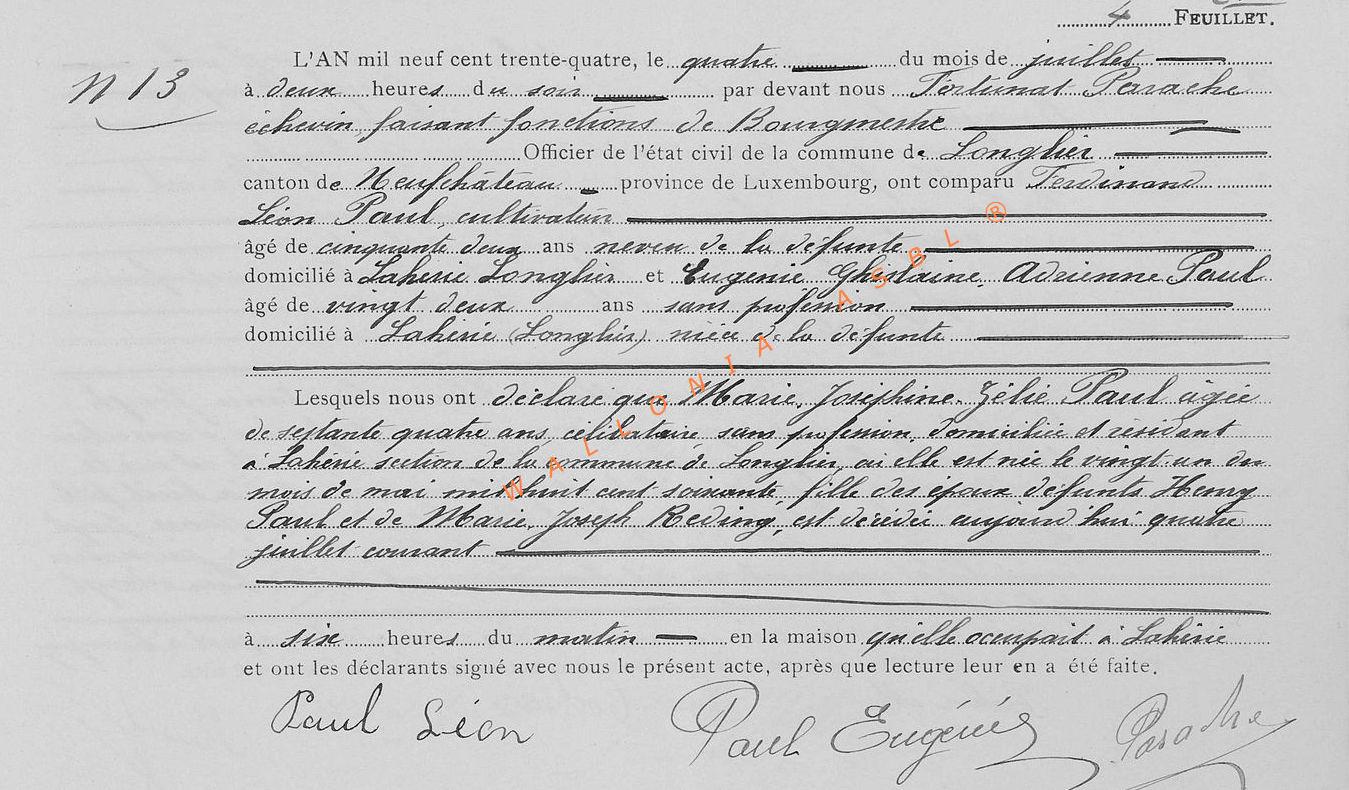 4 FEUILLET.
N 13
L'AN mil neuf cent trente-quatre, le quatre du mois de juillet
à deux heures du soir par devant nous Fortunat Parache
échevin, faisant fonctions de Bourgmestre
Officier de l'état civil de la commune de Longlier
canton de Neufchâteau province de Luxembourg, ont comparu Ferdinand
Léon Paul, cultivateur
âgé de cinquante deux ans neveu de la défunte
domicilié à Laherie Longlier et Eugenie Ghislaine Adrienne Paul
âgé de vingt deux ans sans profession
domicilié à Laherie (Longlier) nièce de la défunte
Lesquels nous ont déclaré que Marie, Joséphine, Zélie Paul âgée
de septante quatre ans, célibataire sans profession, domiciliée et résidant
à Laherie section de la commune de Longlier, où elle est née le vingt un du
mois de mai mil huit cent soixante, fille des époux défunts Henry
Paul et de Marie, Joseph Reding, est décédée aujourd'hui quatre
juillet courant
à six heures du matin en la maison qu'elle occupait à Lahérie
et ont les déclarants signé avec nous le présent acte, après que lecture leur en a été faite.
Paul Léon Paul Eugénie Parache
WALLONIA ASBL ®